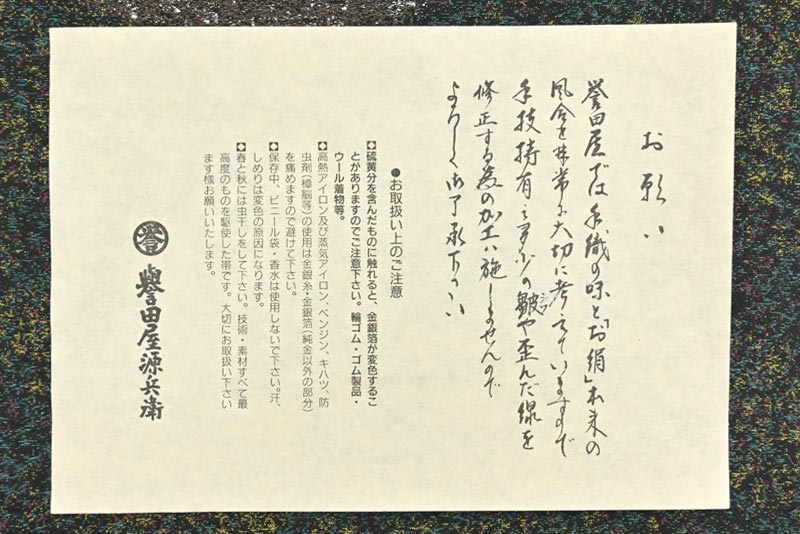 お願い
誉田屋では手織の味と「お絹」本来の
風合を非常に大切に考えていますので
手技特有の多少の皺や歪んだ線を
シワ
修正する為の加工は施しませんので
よろしく御了承下さい
●お取扱い上のご注意
◆硫黄分を含んだものに触れると、金銀箔が変色するこ
とがありますのでご注意下さい。輪ゴム・ゴム製品・
ウール着物等。
◆高熱アイロン及び蒸気アイロン、ベンジン、キハツ、防
虫剤(樟脳等)の使用は金銀糸・金銀箔(純金以外の部分)
を痛めますので避けて下さい。
◆保存中、ビニール袋・香水は使用しないで下さい。汗、
しめりは変色の原因になります。
◆春と秋には虫干しをして下さい。技術・素材すべて最
高度のものを駆使した帯です。大切にお取扱い下さい
ます様お願いいたします。
誉
誉田屋源兵衛